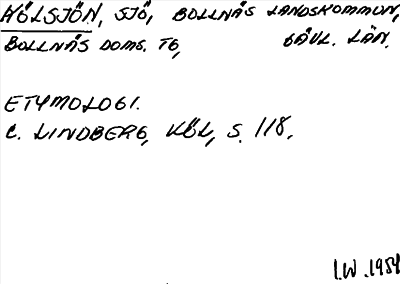 KÖLSJÖN, SJÖ, BOLLNÄS LANDSKOMMUN,
BOLLNÄS DOMS. TG, GÄVL. LÄN.
ETYMOLOGI.
C. LINDBERG, KÖL, S. 118.
I.W. 1954